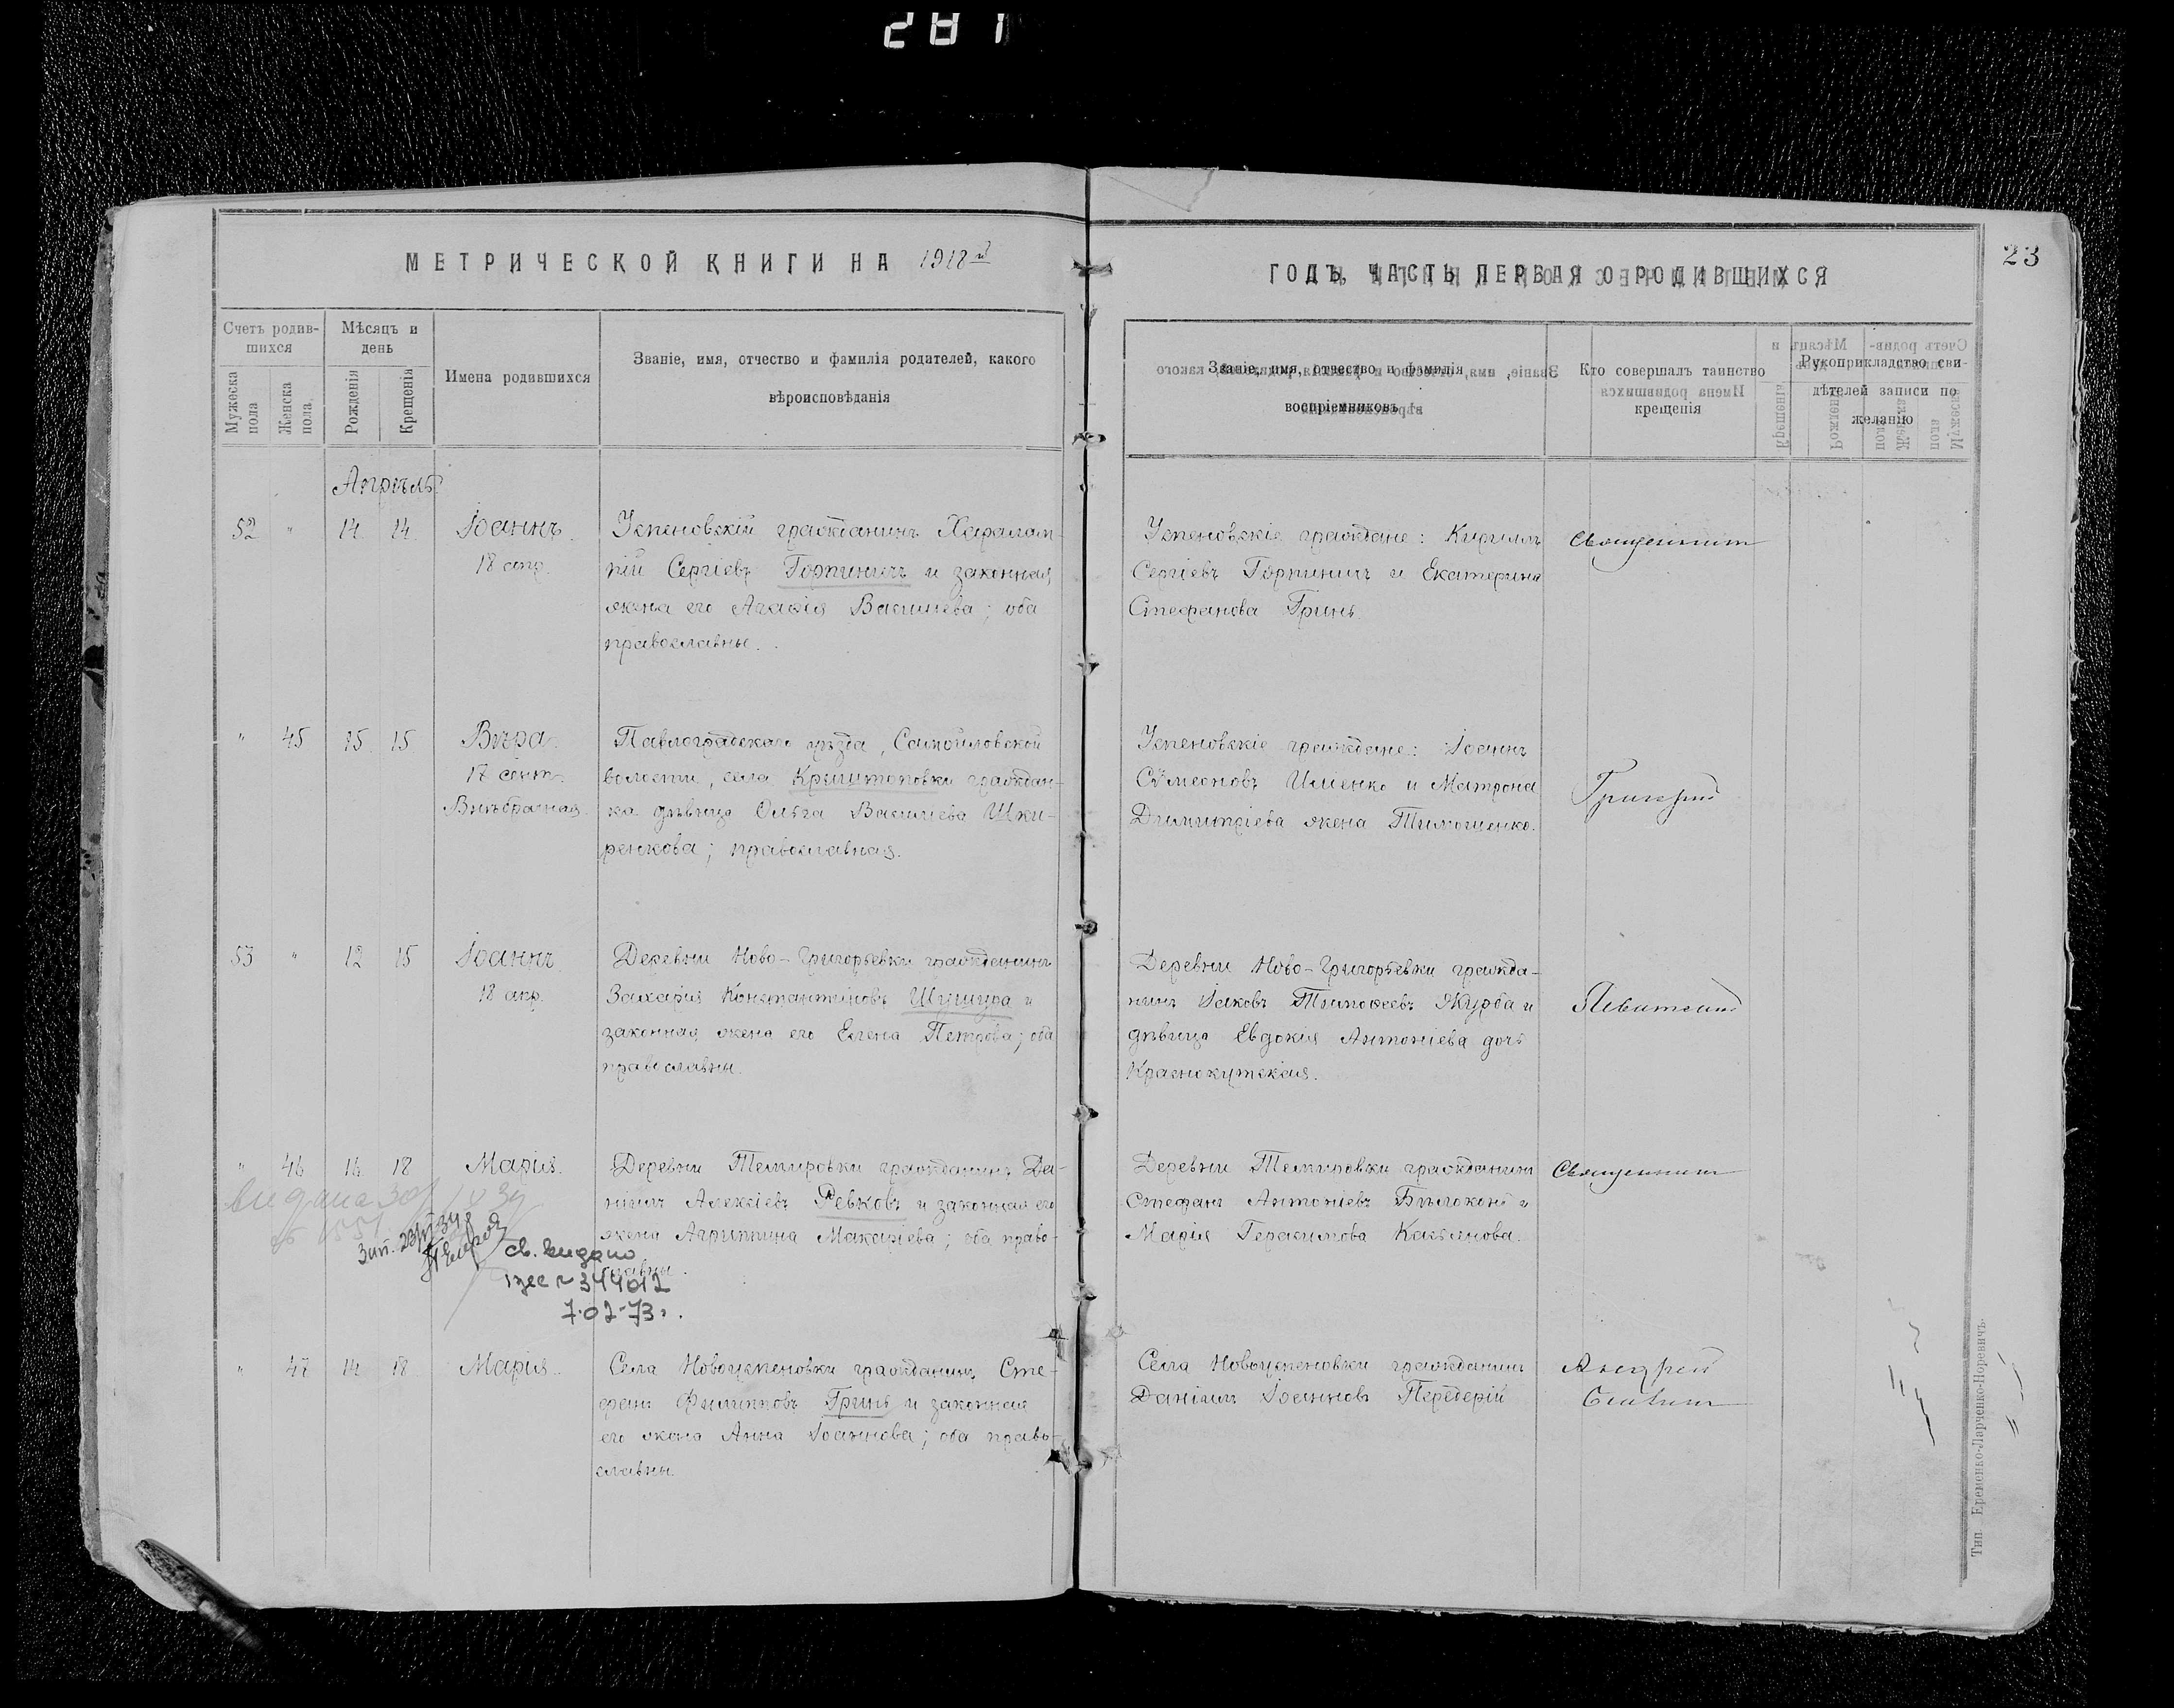 281
МЕТРИЧЕСКОЙ КНИГИ НА 1918 й
ГОДЪ, ЧАСТЬ ПЕРВАЯ О РОДИВШИХСЯ
23
Счетъ родив-
шихся
Мужеска
пола
Женска
пола
Мѣсяцъ и
день
Рожденія
Крещенія
Имена родившихся
Званіе, имя, отчество и фамилія родителей, какого
вѣроисповѣданія
Званіе, имя, отчество и фамилія
воспріемниковъ
Кто совершалъ таинство
крещенія
Рукоприкладство сви-
дѣтелей записи по
желанію
Апрѣль
52 " 14 14 Іоаннъ
18 апр.
Успеновскій гражданинъ Харалам-
пій Сергіевъ Горпиничъ и законная
жена его Агафія Василіева; оба
православны.
Успеновскіе граждане: Кириллъ
Сергіевъ Горпиничъ и Екатерина
Стефанова Гринь.
Священникъ
" 45 15 15 Вѣра
17 сент.
Внѣбрачная.
Павлоградскаго уѣзда, Самойловской
волости, села Крыштоповки граждан-
ка дѣвица Ольга Василіева Шки-
ренкова; православная.
Успеновскіе граждане: Іоаннъ
Сѵмеоновъ и Матрона
Димитріева жена Тимошенко.
Григорій
53 " 12 15 Іоаннъ
18 апр.
Деревни Ново-Григорьевки гражданинъ
Захарія Константиновъ Шушура и
законная жена его Елена Петрова; оба
православны.
Деревни Ново-Григорьевки гражда-
нинъ Іаковъ Тимофеевъ Журба и
дѣвица Евдокія Антоніева дочь
Краснокутская.
Левитскій
" 46 16 18 Марія.
Деревни Темировки гражданинъ Да-
ніилъ Алексіевъ Ревковъ и законная его
жена Агриппина Макаріева; оба право-
славны.
Деревни Темировки гражданинъ
Стефанъ Антоніевъ Бѣлоконь и
Марія Герасимова Касьянова.
Священникъ
св. видано
344012
7.02-73г.
" 47 14 18 Марія.
Села Новоуспеновки гражданинъ Сте-
фанъ Филипповъ Гринь и законная
его жена Анна Іоаннова; оба право-
славны.
Села Новоуспеновки гражданинъ
Даніилъ Іоанновъ Передерій
Андрей
Тип. Еременко-Ларченко-Норевичъ.